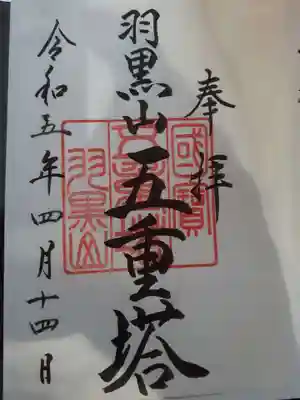 奉拝
羽黒山五重塔
令和五年四月十四日
國寶
五重塔
羽黒山